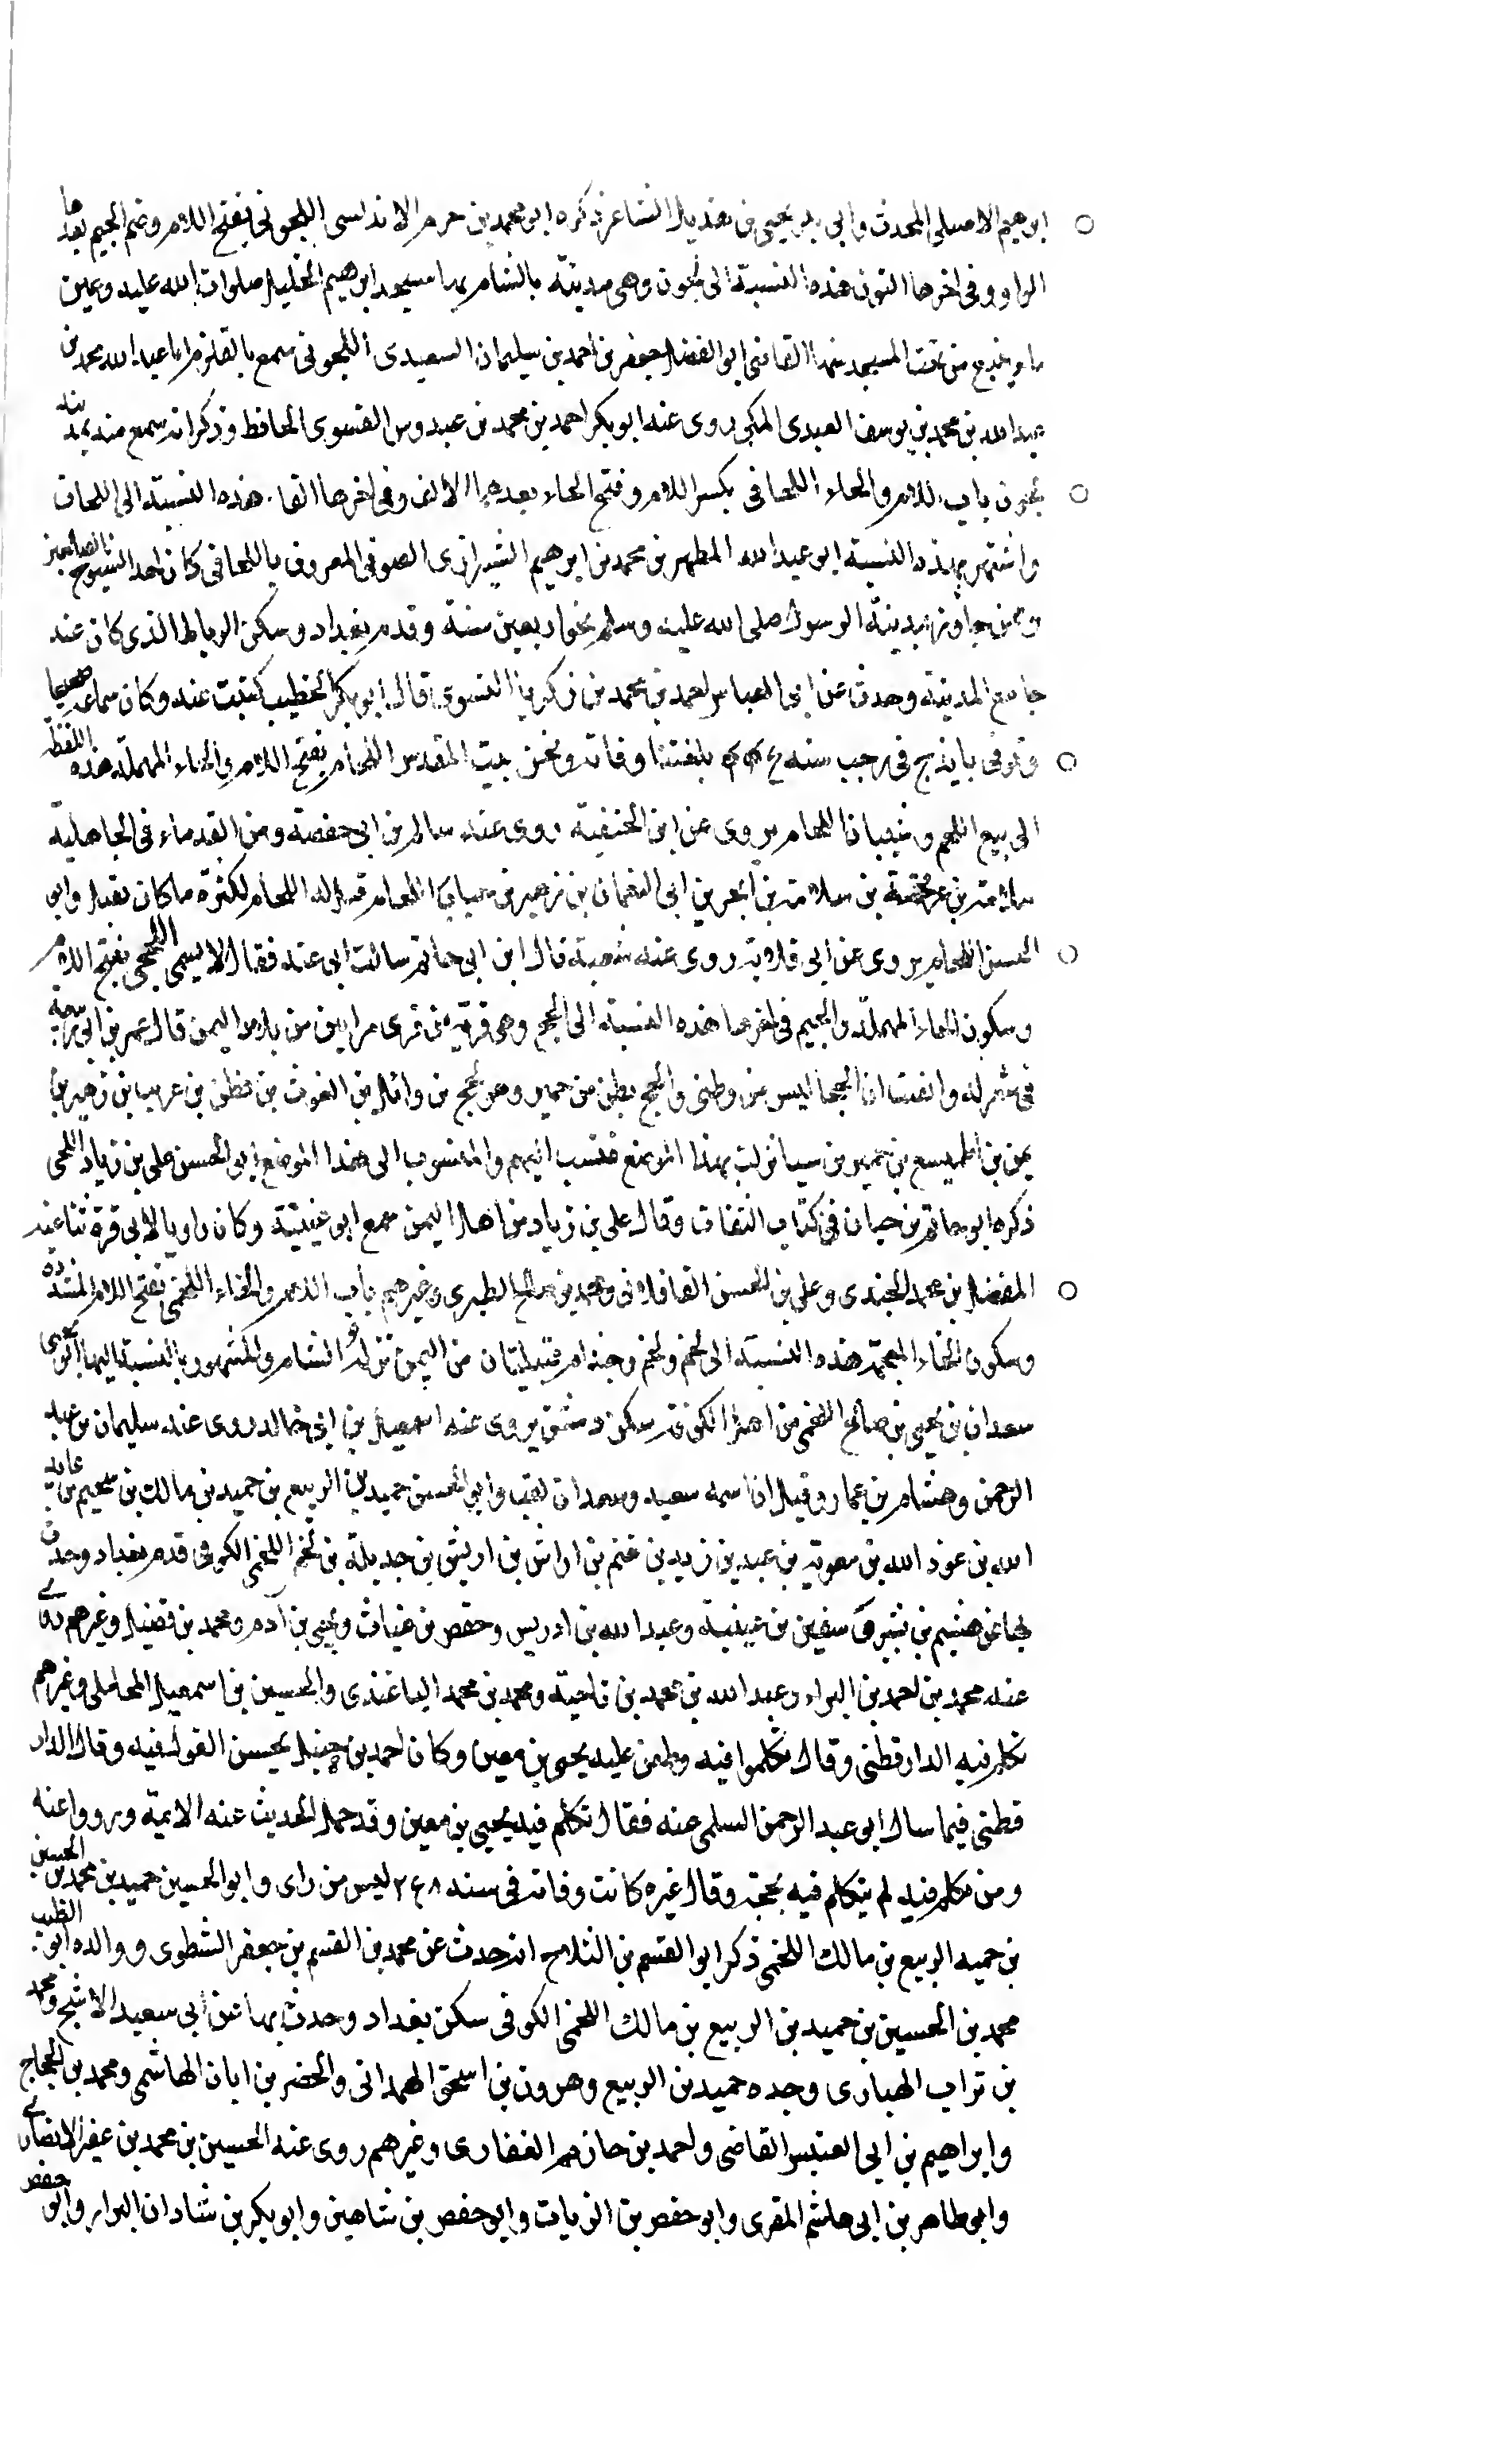 ابرهيم الاصيلى المحدث وابى بكر يحيى بن هذيل الشاعر ذكره ابو محمد بن حزم الاندلسى اللجونى بفتح اللام وضم الجيم بعدها
الواو وفى اخرها النون هذه النسبة الى لجون وهى مدينة بالشام بها مسجد ابرهيم الخليل صلوات الله عليه وعين
ماء ينبع من تحت المسجد منها القاضى ابو الفضل جعفر بن احمد بن سليمان السعيدى اللجونى سمع بالقلزم ابا عبد الله محمد بن
عبد الله بن محمد بن يوسف العبدى المكى روى عنه ابو بكر احمد بن محمد بن عبدوس الفسوى الحافظ وذكر انه سمع منه بمدينة
لجون باب اللام والحاء اللحافى بكسر اللام وفتح الحاء بعدها الالف وفى اخرها الفا هذه النسبة الى اللحاف
واشتهر بهذه النسبة ابو عبد الله المطهر بن محمد بن ابرهيم الشيرازى الصوفى المعروف باللحافى كان احد الشيوخ الصالحين
وممن جاور بمدينة الرسول صلى الله عليه وسلم نحو اربعين سنة وقدم بغداد وسكن الرباط الذى كان عند
جامع المدينة وحدث عن ابى العباس احمد بن محمد بن زكريا النسوى قال ابو بكر الخطيب كتبت عنه وكان سماعه صحيحا
وتوفى بايذج فى رجب سنه بلغتنا وفاته ونحن ببيت المقدس اللحام بفتح اللام والحاء المهملة هذه اللفظة
الى بيع اللحم و اللحام يروى عن ابن الحنفية روى عنه سالم بن ابى حفصة ومن القدماء فى الجاهلية
بن سلامة بن ابجر بن ابى النعمان بن زهير بن اللحام قيل له اللحام لكثرة ما كان يقتل وابو
الحسن اللحام يروى عن ابى قلابة روى عنه شعبة قال ابن ابى حاتم سالت ابى عنه فقال لا يسمى اللحجى بفتح اللام
وسكون الحاء المهملة والجيم فى اخرها هذه النسبة الى لحج وهى قرية من قرى ابين من بلاد اليمن قال عمر بن ابى ربيعة
فى شعر له وايقنت ان لحجا ليس من وطنى ولحج بطن من حمير وهو لحج بن وائل بن الغوث بن قطن بن عريب بن زهير بن
ايمن بن الهميسع بن حمير بن سبا نزلت بهذا الموضع فنسب اليهم والمنسوب الى هذا الموضع ابو الحسن على بن زياد اللحجى
ذكره ابو حاتم بن حبان فى كتاب الثقات وقال على بن زياد من اهل اليمن سمع ابن عيينة وكان راويا لابى قرة ثنا عنه
المفضل بن محمد الجندى وعلى بن الحسن القافلانى ومحمد بن صالح الطبرى وغيرهم باب اللام والخاء اللخمى بفتح اللام المشددة
وسكون الخاء المعجمة هذه النسبة الى لخم ولخم وجذام قبيلتان من اليمن نزلوا الشام والمشهور بالنسبة اليها ابو يحيى
سعدان بن يحيى بن صالح اللخمى من اهل الكوفة سكن دمشق يروى عنه اسمعيل بن ابى خالد روى عنه سليمان بن عبد
الرحمن وهشام بن عمار وقيل ان اسمه سعيد وسعدان لقب وابو الحسن حميد بن الربيع بن حميد بن مالك بن سحيم بن عايذ
الله بن عوذ الله بن معوية بن عبيد بن زيد بن غنم بن اراش بن اريش بن جديلة بن لخم اللخمى الكوفى قدم بغداد وحدث
بها عن هشيم بن بشير وسفين بن عيينة وعبد الله بن ادريس وحفص بن غياث ويحيى بن آدم ومحمد بن فضيل وغيرهم روى
عنه محمد بن احمد بن البراء وعبد الله بن محمد بن ناجية ومحمد بن محمد الباغندى والحسين بن اسمعيل المحاملى وغيرهم
تكلم فيه الدارقطنى وقال تكلموا فيه وطعن عليه يحيى بن معين وكان احمد بن حنبل يحسن القول فيه وقال الدار
قطنى فيما سال ابو عبد الرحمن السلمى عنه فقال تكلم فيه يحيى بن معين وقد حمل الحديث عنه الايمة ورووا عنه
ومن تكلم فيه لم يتكلم فيه بحجة وقال غيره كانت وفاته فى سنه ٢٥٨ ليس من راى وابو الحسين حميد بن محمد بن الحسين
بن حميد الربيع بن مالك اللخمى ذكر ابو القسم بن الثلاج انه حدث عن محمد بن القسم بن جعفر الشطوى ووالده ابو الطيب
محمد بن الحسين بن حميد بن الربيع بن مالك اللخمى الكوفى سكن بغداد وحدث بها عن ابى سعيد الاشج ومحمد
بن تراب الهبارى وجده حميد بن الربيع وهرون بن اسحق الهمدانى والخضر بن ابان الهاشمى ومحمد بن الحجاج
وابراهيم بن ابى العنبس القاضى واحمد بن حازم الغفارى وغيرهم روى عنه الحسين بن محمد بن عفير الانصارى
وابو طاهر بن ابى هاشم المقرى وابو حفص بن الزيات وابو حفص بن شاهين وابو بكر بن شاذان البزار وابو حفص